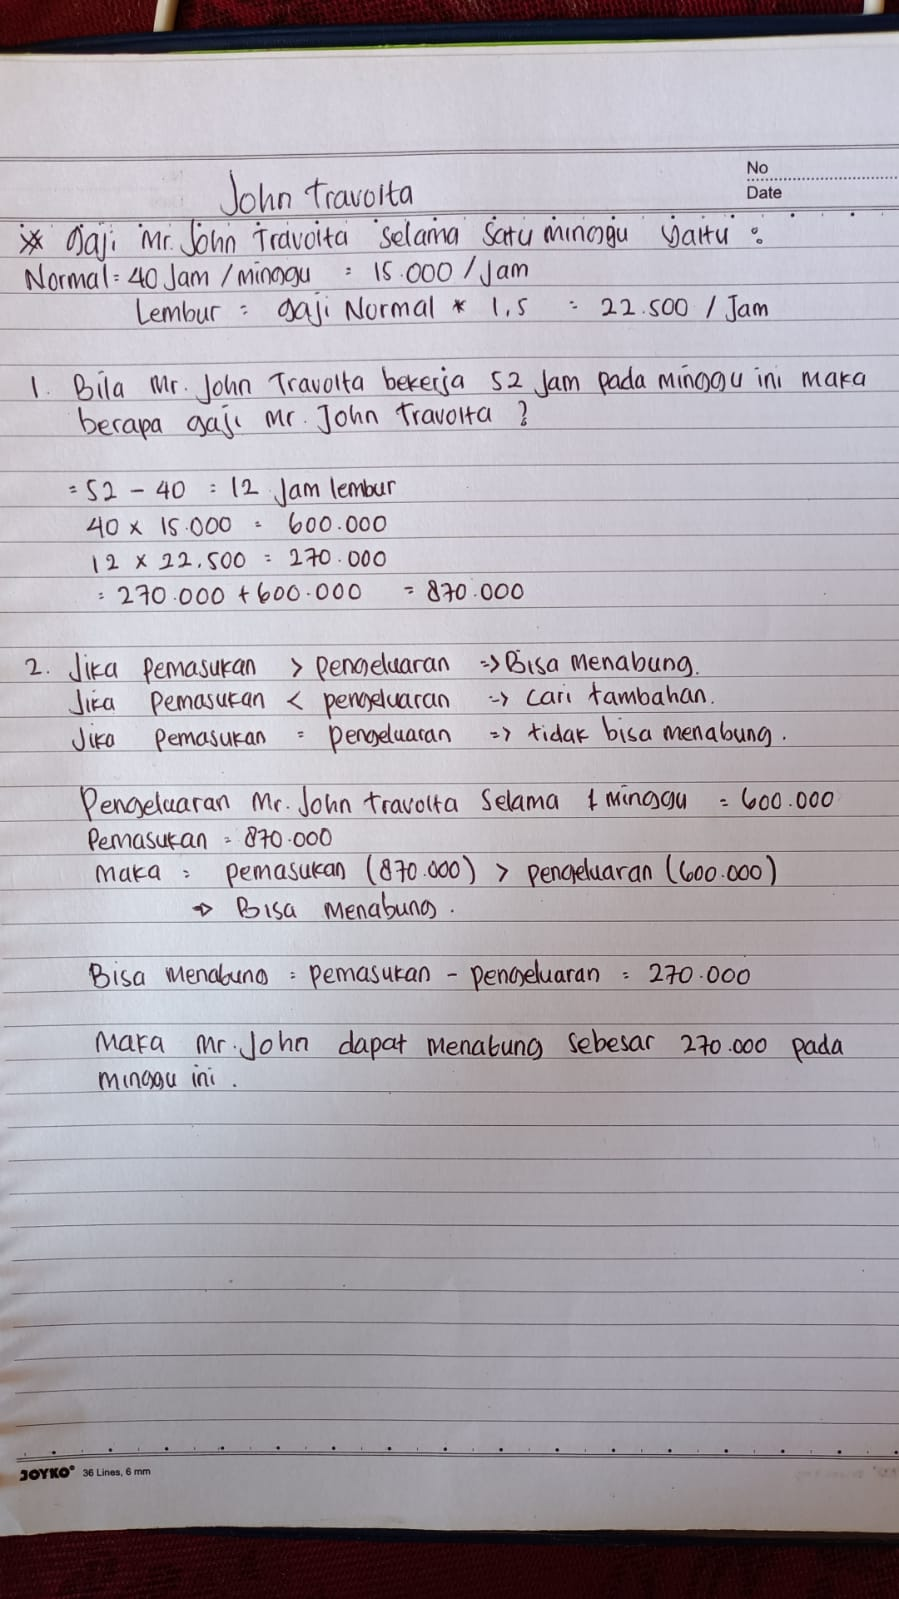 No
Date
John Travolta
* Gaji Mr. John Travolta selama satu minggu yaitu :
Normal = 40 Jam / minggu = 15.000 / Jam
Lembur = gaji Normal * 1,5 = 22.500 / Jam
1. Bila Mr. John Travolta bekerja 52 Jam pada minggu ini maka
berapa gaji Mr. John Travolta ?
= 52 - 40 = 12 Jam lembur
40 x 15.000 = 600.000
12 x 22.500 = 270.000
= 270.000 + 600.000 = 870.000
2. Jika Pemasukan > Pengeluaran => Bisa Menabung.
Jika Pemasukan < pengeluaran => cari tambahan.
Jika Pemasukan = Pengeluaran => tidak bisa menabung.
Pengeluaran Mr. John travolta Selama 1 minggu = 600.000
Pemasukan = 870.000
Maka = pemasukan (870.000) > pengeluaran (600.000)
⇒ Bisa Menabung.
Bisa Menabung = pemasukan - pengeluaran = 270.000
Maka Mr. John dapat Menabung sebesar 270.000 pada
minggu ini.
JOYKO® 36 Lines, 6 mm